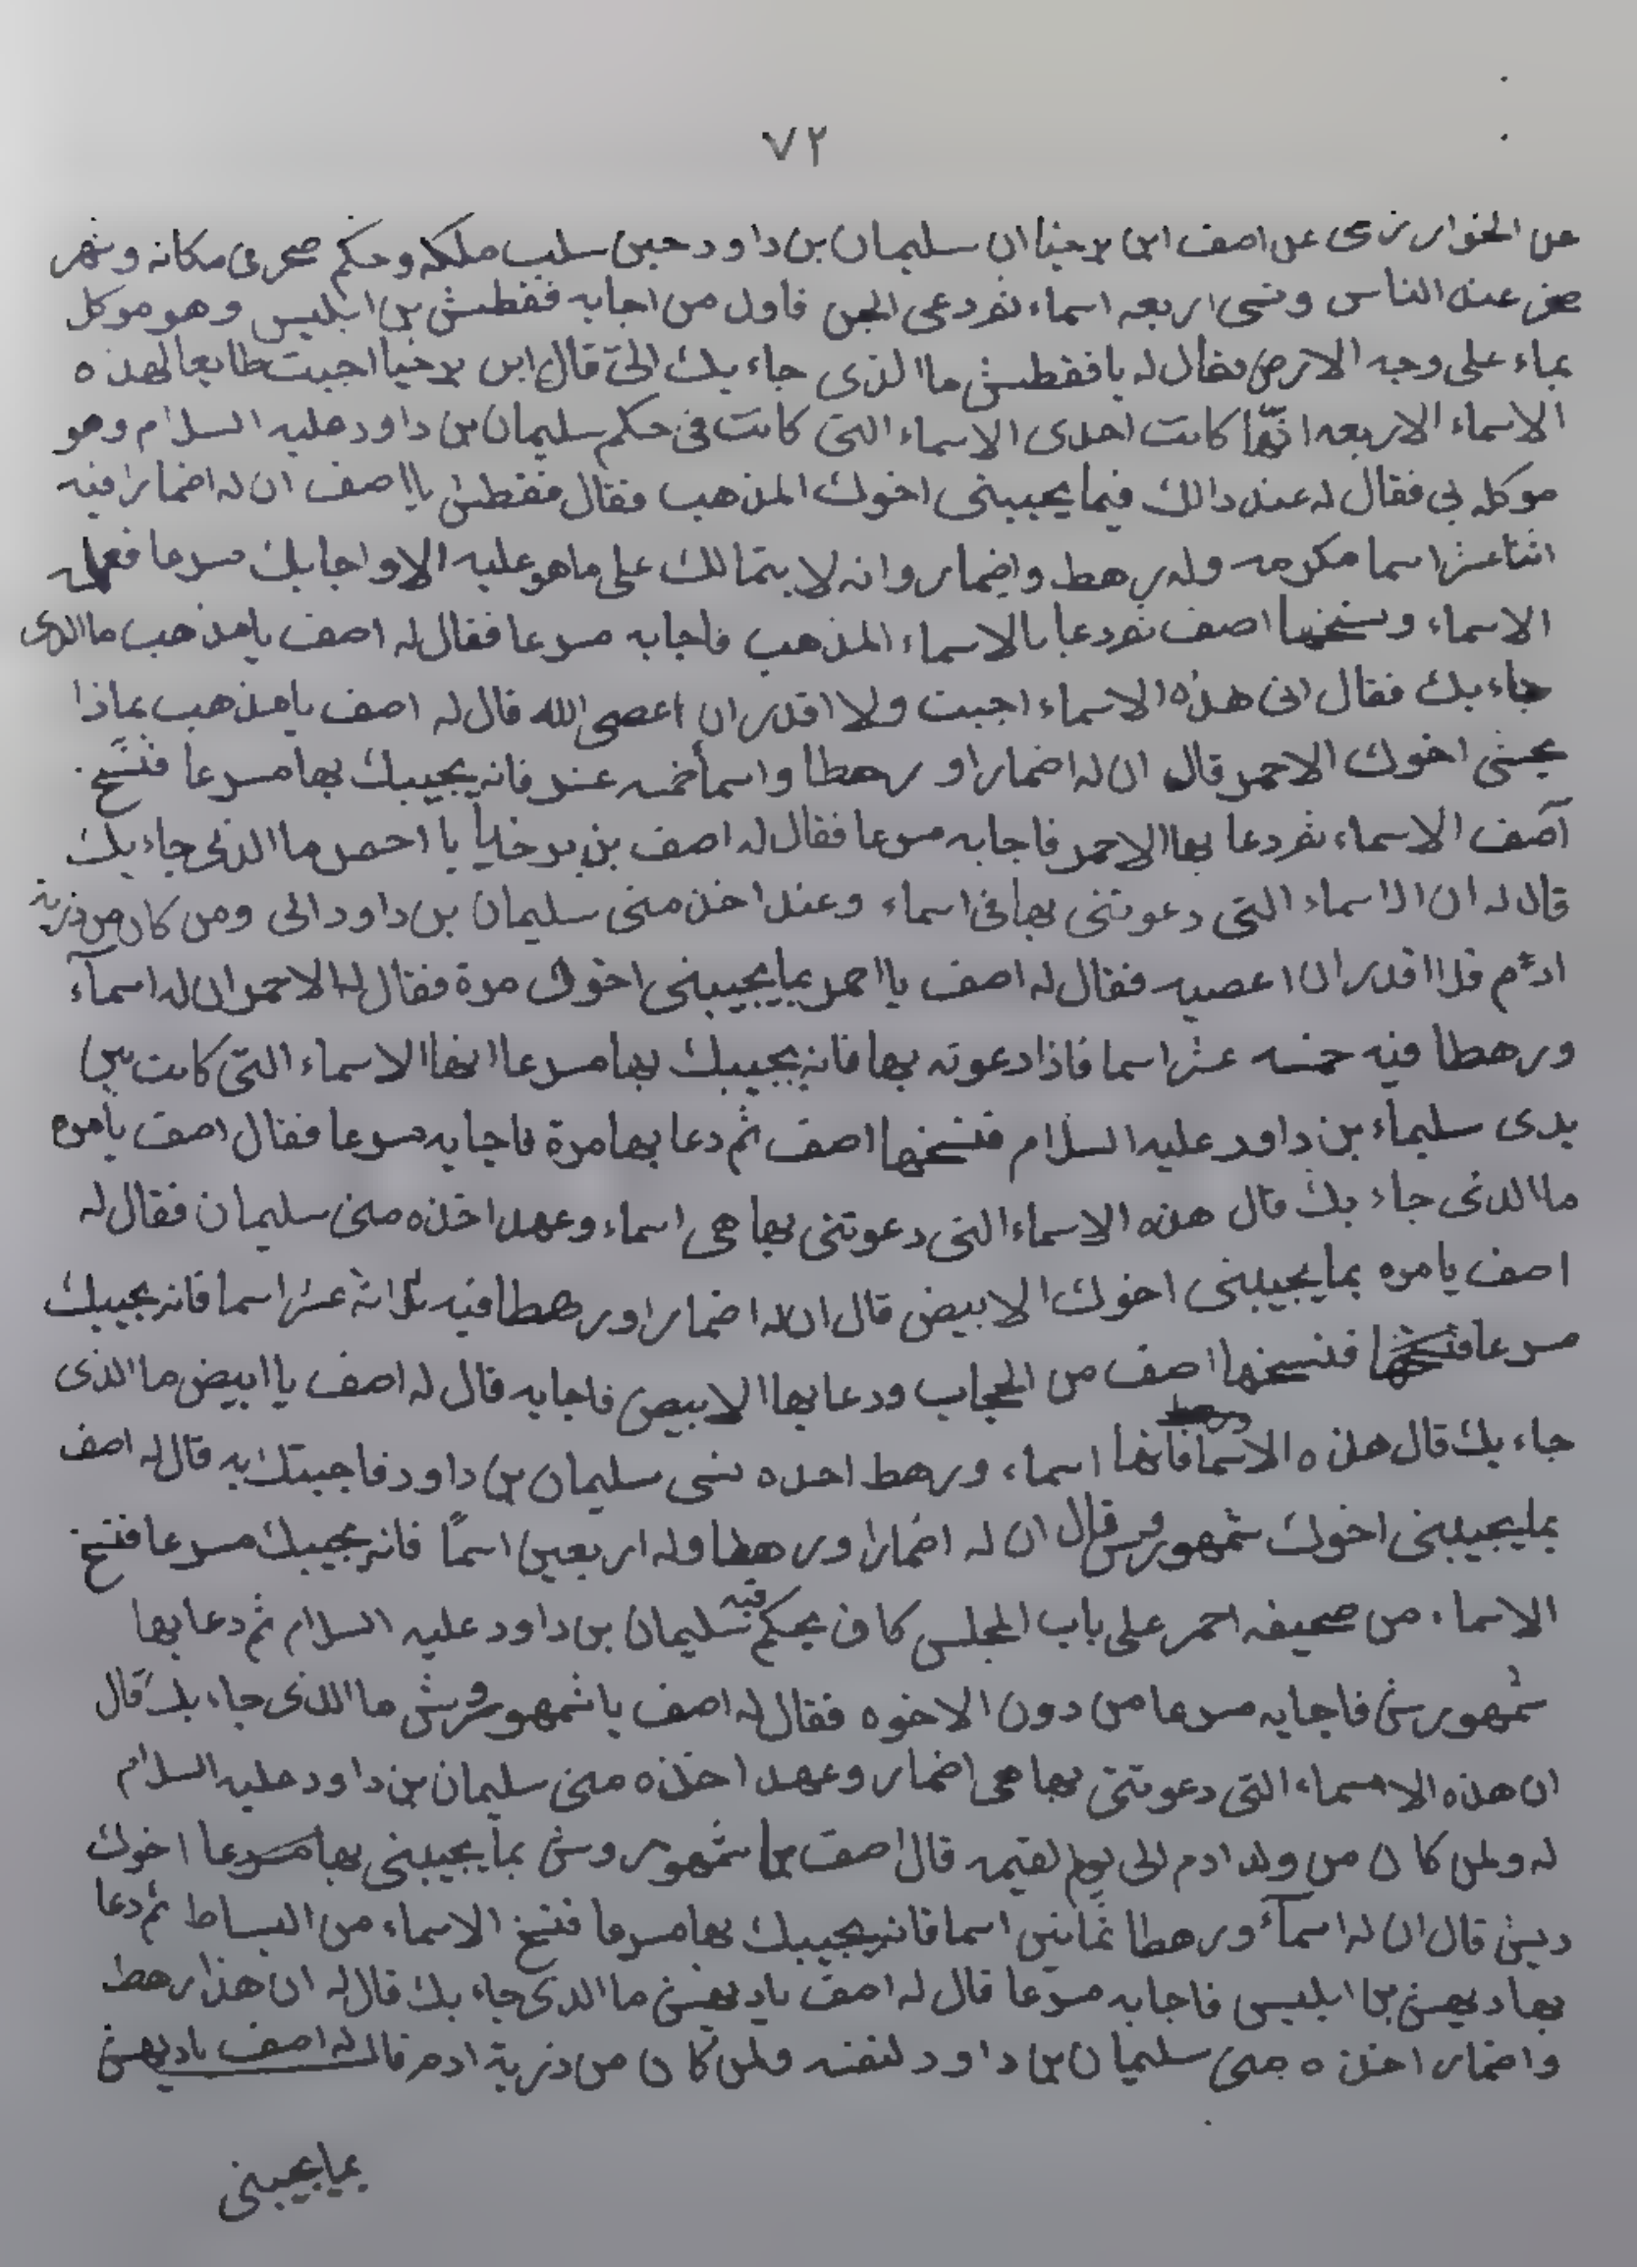 ٧٢
عن الخوارزمى عن اصف ابن برخيا ان سليمان بن داود حين سلب ملكه وحكم صخر فى مكانه وشهر
صخر عند الناس ونسى اربعه اسماء ثم دعى الجن فاول من اجابه فقطش بن ابليس وهو موكل
بماء على وجه الارض فقال له يا فقطش ما الذى جاء بك الىّ قال ابن برخيا اجبت طايعا لهذه
الاسماء الاربعه انّها كانت احدى الاسماء التى كانت فى حكم سليمان بن داود عليه السلام وهو
موكله بى فقال له عند دالك فيما يجيبنى اخوك المذهب فقال فقطش يا اصف ان له اضمارا فيه
اثنا عشر اسما مكرمه وله رهط واضمار وانه لا يتمالك على ما هو عليه الا واجابك مسرعا فعلمه
الاسماء ونسخها اصف ثم دعا بالاسماء المذهب فاجابه مسرعا فقال له اصف يا مذهب ما الذى
جاء بك فقال انى هذه الاسماء اجبت ولا اقدر ان اعصى الله قال له اصف يا مذهب بماذا
يجبنى اخوك الاحمر قال ان له اضمارا و رهطا واسما خمسه عشر فانه يجيبك بها مسرعا فنسخ
آصف الاسماء ثم دعا بها الاحمر فاجابه مسرعا فقال له اصف بن برخيا يا احمر ما الذى جاء بك
قال له ان الاسماء التى دعوتنى بها فى اسماء وعند اخذ منى سليمان بن داود الى ومن كان من ذرية
ادم فلا اقدر ان اعصيه فقال له اصف يا احمر بما يجيبنى اخوك مرة فقال له الاحمر ان له اسمآء
ورهطا فيه خمسه عشر اسما فاذا دعوته بها فانه يجيبك بها مسرعا انها الاسماء التى كانت بين
يدى سليماء بن داود عليه السلام فنسخها اصف ثم دعا بها مرة فاجابه مسرعا فقال اصف يا مره
ما الذى جاء بك قال هذه الاسماء التى دعوتنى بها هى اسماء وعهد اخذه منى سليمان فقال له
اصف يا مره بما يجيبنى اخوك الابيض قال ان له اضمارا ورهطا فيه ثلاثة عشر اسما فانه يجيبك
مسرعا فنسخها فنسخها اصف من الحجاب ودعا بها الابيض فاجابه قال له اصف يا ابيض ما الذى
جاء بك قال هذه الاسما فانها اسماء ورهط اخده منى سليمان بن داود فاجبتك به قال له اصف
بما يجيبنى اخوك شمهورش قال ان له اضمارا ورهطا وله اربعين اسمًا فانه يجيبك مسرعا فنسخ
الاسماء من صحيفه احمر على باب المجلس كان يحكم فيه سليمان بن داود عليه السلام ثم دعا بها
شمهورش فاجابه مسرعا من دون الاخوه فقال له اصف يا شمهورش ما الذى جاء بك قال
ان هذه الاسماء التى دعوتنى بها هى اضمار وعهد اخذه منى سليمان بن داود عليه السلام
له ولمن كان من ولد ادم الى يوم لقيمه قال اصف يا شمهوروش بما يجيبنى بها مسرعا اخوك
ديهش قال ان له اسمآء ورهطا ثمانين اسما فانه يجيبك بها مسرعا فنسخ الاسماء من البساط ثم دعا
بها ديهش بن ابليس فاجابه مسرعا قال له اصف يا ديهش ما الذى جاء بك قال له ان هذا رهط
واضمار اخذه منى سليمان بن داود لنفسه ولمن كان من ذرية ادم قال له اصف يا ديهش
بما يجيبنى